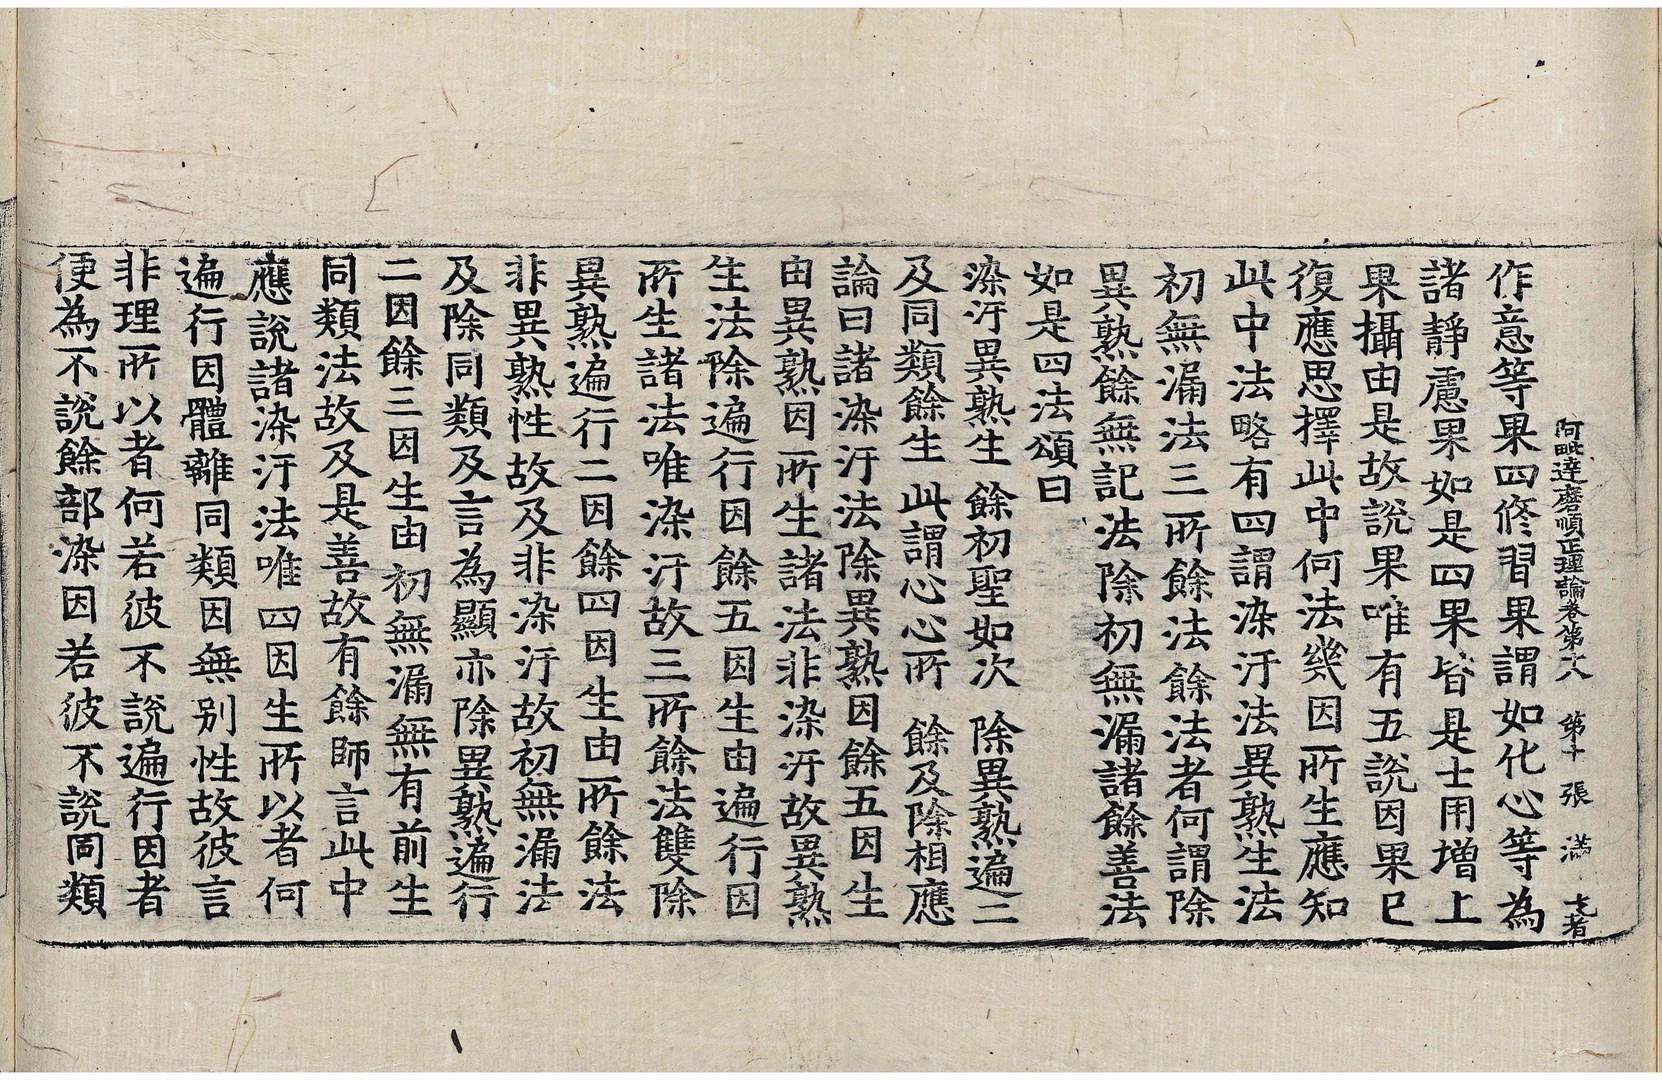 阿毗達磨順正理論卷第十八 第十張 满
作意等果四修習果謂如化心等為
諸靜慮果如是四果皆是士用增上
果攝由是故說果唯有五說因果已
復應思擇此中何法幾因所生應知
此中法略有四謂染汙法異熟生法
初無漏法三所餘法餘法者何謂除
異熟餘無記法除初無漏諸餘善法
如是四法頌曰
染汙異熟生 餘初聖如次 除異熟遍二
及同類餘生 此謂心心所 餘及除相應
論曰諸染汙法除異熟因餘五因生
由異熟因所生諸法非染汙故異熟
生法除遍行因餘五因生由遍行因
所生諸法唯染汙故三所餘法雙除
異熟遍行二因餘四因生由所餘法
非異熟性故及非染汙故初無漏法
及除同類及言為顯亦除異熟遍行
二因餘三因生由初無漏無有前生
同類法故及是善故有餘師言此中
應說諸染汙法唯四因生所以者何
遍行因體離同類因無別性故彼言
非理所以者何若彼不說遍行因者
便為不說餘部染因若彼不說同類